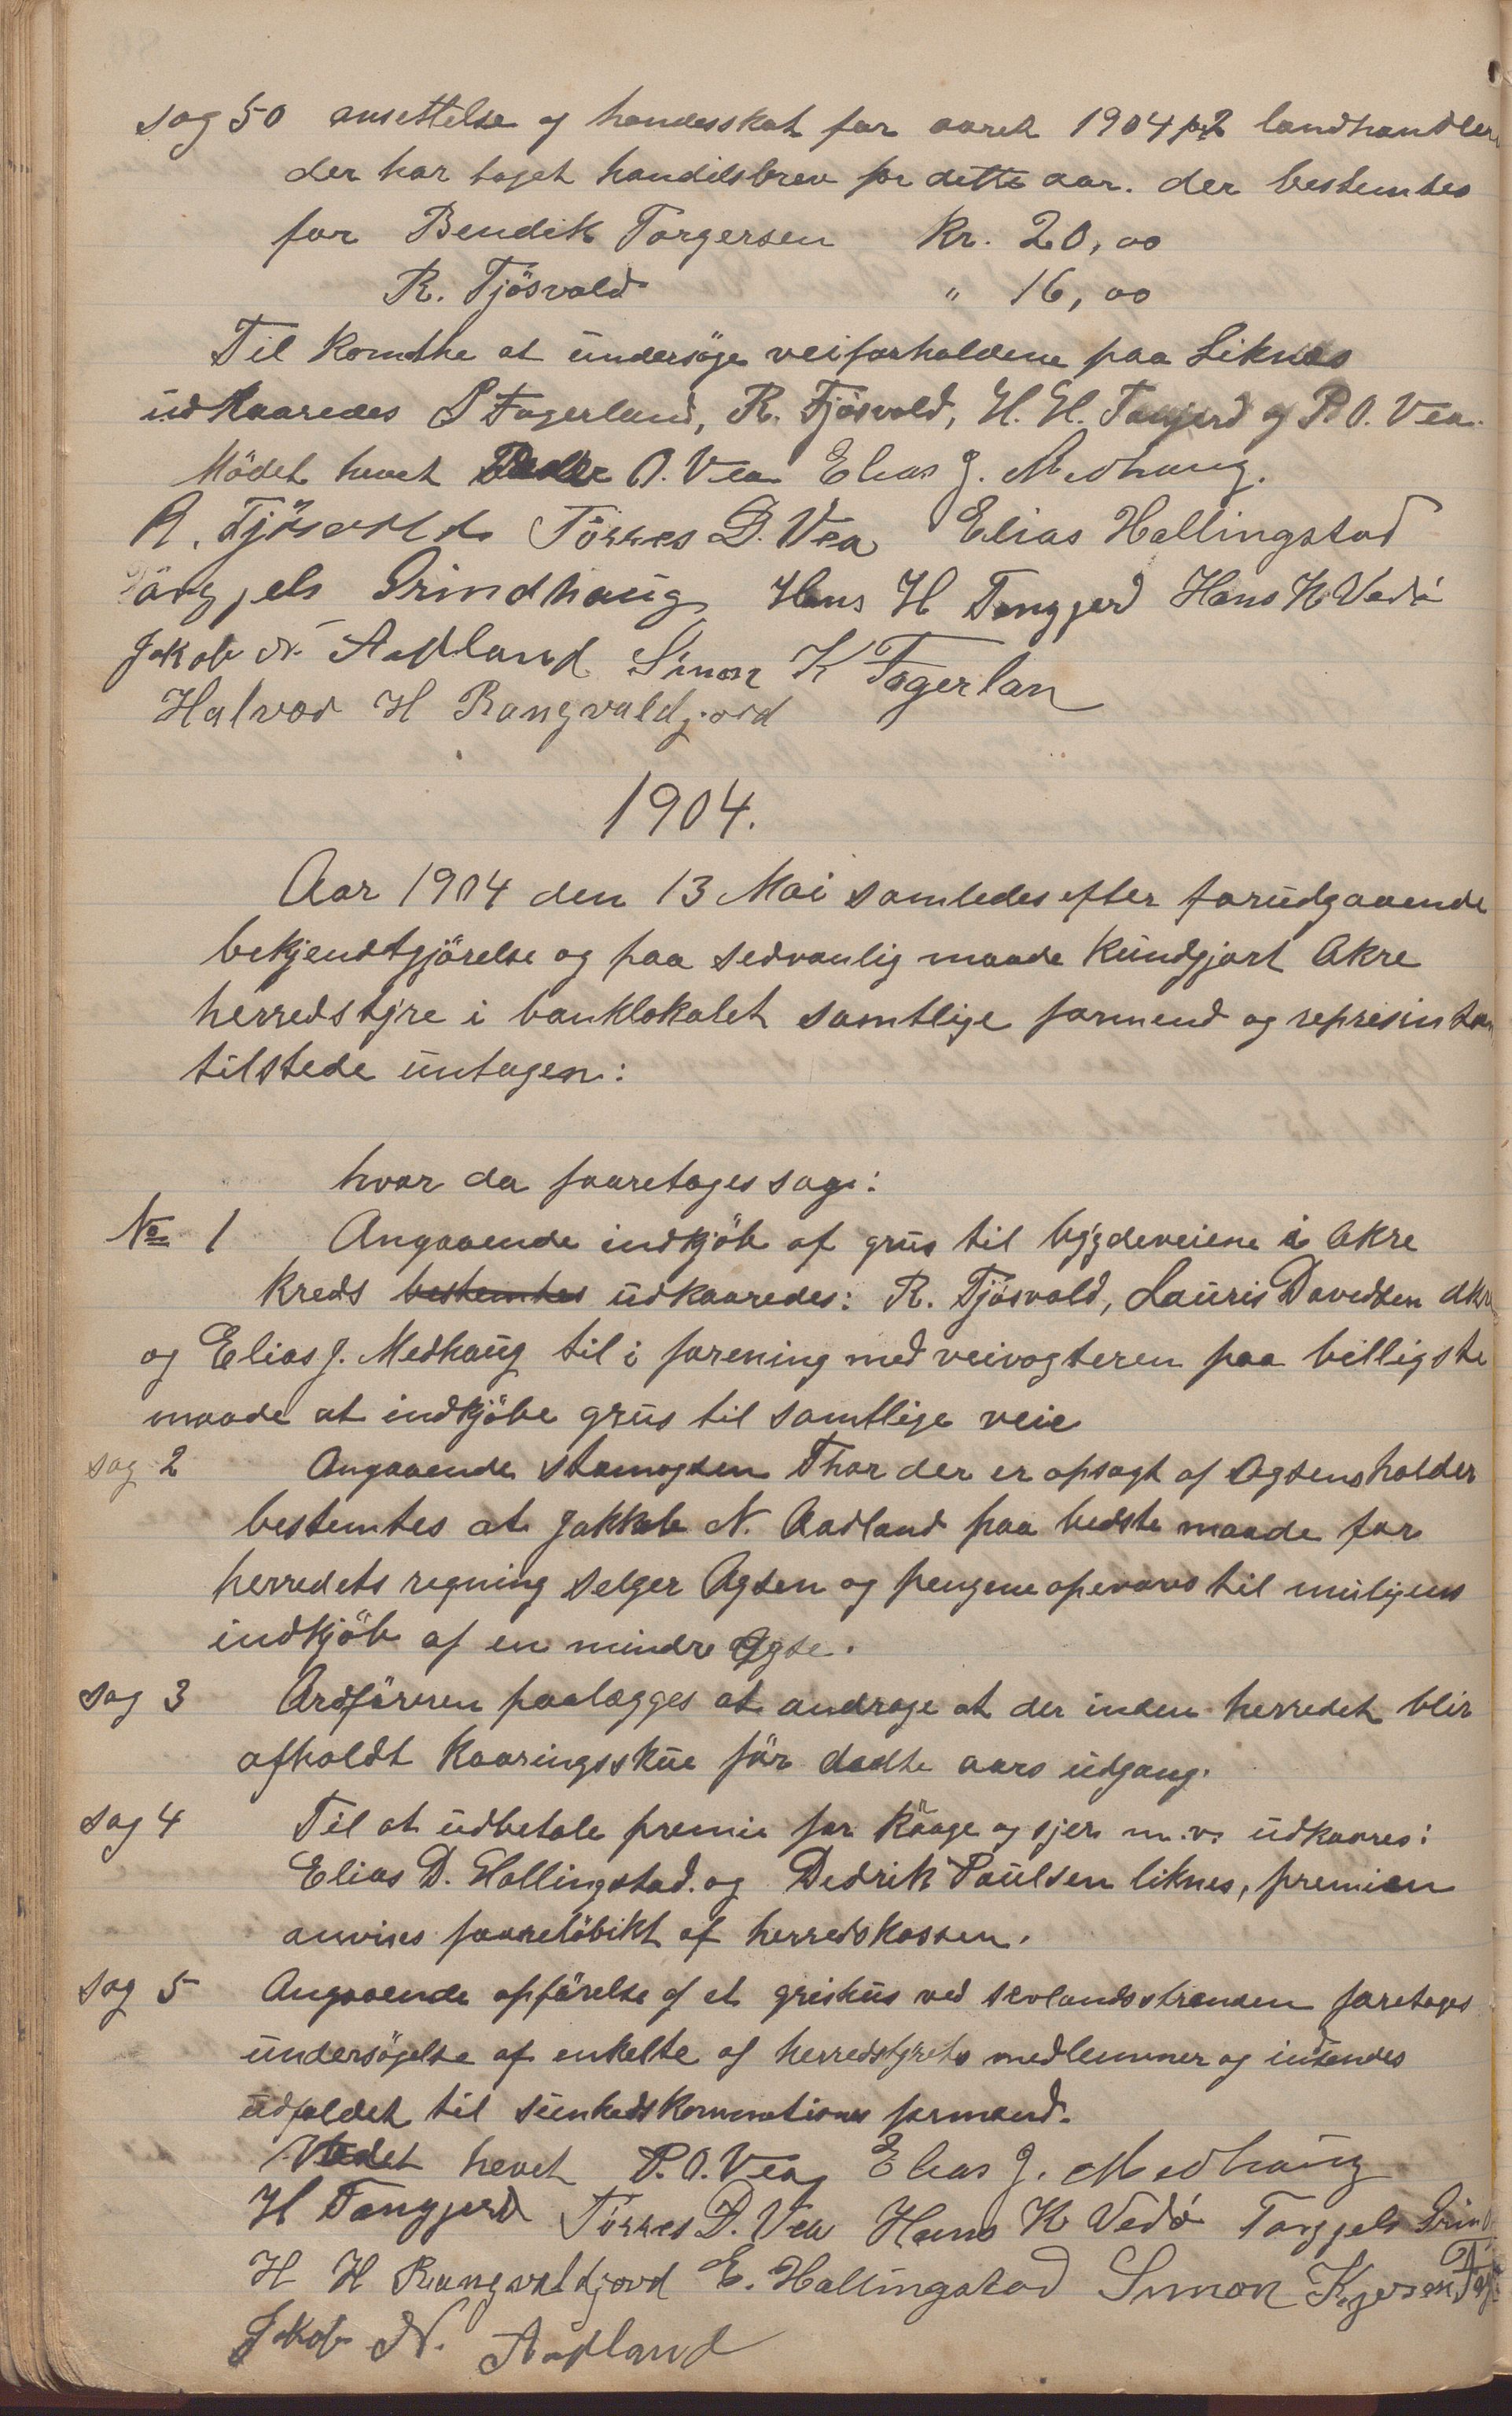 sag 50 ansettelse af handesskat for aaret 1904 for 2 landhandler
der har taget handelsbrev for dette aar. der bestemtes
for Bendik Torgersen Kr. 20,00
R. Tjösvold " 16,00
Til Komthe at undersöge veiforholdene paa Liknes
udkaaredes S Fagerland, R. Tjösvold, H. H. Tangjerd og P. O. Vea.
Mödet hevet Peder O. Vea Elias J. Medhaug.
R. Tjösvold Törres D. Vea Elias Hallingstad
Torgjels Grindhaug Hans H Tangjerd Hans K Vedö
Jakob N Aadland Simon K Fagerlan
Halvor H Rangvaldjord
1904.
Aar 1904 den 13 Mai samledes efter forudgaaende
bekjendtgjörelse og paa sedvanlig maade Kundgjort Akre
herredstyre i banklokalet samtlige formend og represintan
tilstede untagen:
hvor da foaretages sag:
No 1 Angaaende indkjöb af grus til bygdeveiene i Akre
kreds bestemtes udkaaredes: R. Tjösvold, Lauris Davedsen Akr
og Elias J. Medhaug til i forening med veivogteren paa billigste
maade at indkjöbe grus til samtlige veie
sag 2 Angaaende stamogsen Thor der er opsagt af Ogsensholder
bestemtes at Jakkob N. Aadland paa bedste maade for
herredets regning selger Ogsen og pengene opevares til muligens
indkjöb af en mindre Ogse.
sag 3 Ordföreren paalægges at andrage at der inden herredet blir
afholdt Kaaringsskue för dette aars udgang.
sag 4 Til at udbetale premie for Kraage og sjer m.v. udkaares:
Elias D. Hallingstad og Dedrik Paulsen liknes, premien
anvises foareløbikt af herredskassen.
sag 5 Angaaende opförelse af et grishus ved sevlandsstranden foretages
undersögelse af enkelte af herredstyrets medlemmer og insendes
udfaldet til sunhedskommotionens formand.
Mödet hevet P. O. Vea Elias J. Medhaug
H Tangjerd Törres D. Vea Hans K Vedö Torgjels Grind
H H Rangvaldjord E. Hallingstad Simon K
Jakob N. Aadland